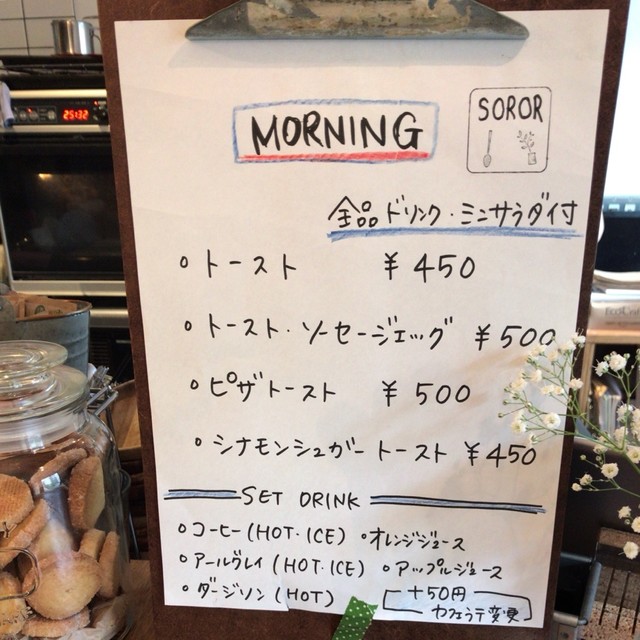 MORNING
SOROR
全品ドリンク・ミニサラダ付
• トースト ¥450
• トースト・ソーセージエッグ ¥500
• ピザトースト ¥500
• シナモンシュガートースト ¥450
SET DRINK
• コーヒー(HOT・ICE) • オレンジジュース
• アールグレイ(HOT・ICE) • アップルジュース
• ダージリン(HOT)
+50円
カフェラテ変更
25:32